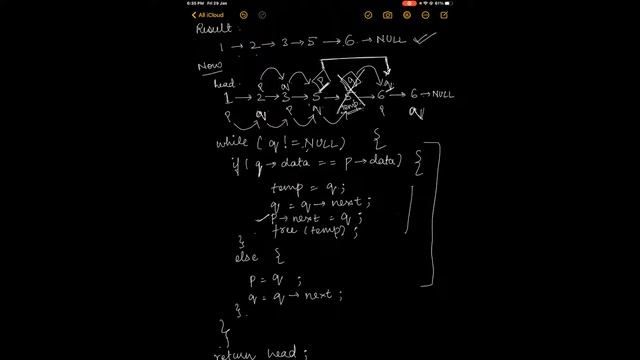 6:35 PM Fri 29 Jan
61%
All iCloud
Result:
1 → 2 → 3 → 5 → 6 → NULL ✓
Now
head
p q p q q
1 → 2 → 3 → 5 → 5 → 6 → 6 → NULL
temp
p q p q p q
while ( q != NULL ) {
if ( q → data == p → data ) {
temp = q ;
q = q → next ;
✓ p → next = q ;
free (temp) ;
}
else {
p = q ;
q = q → next ;
}
}
return head ;